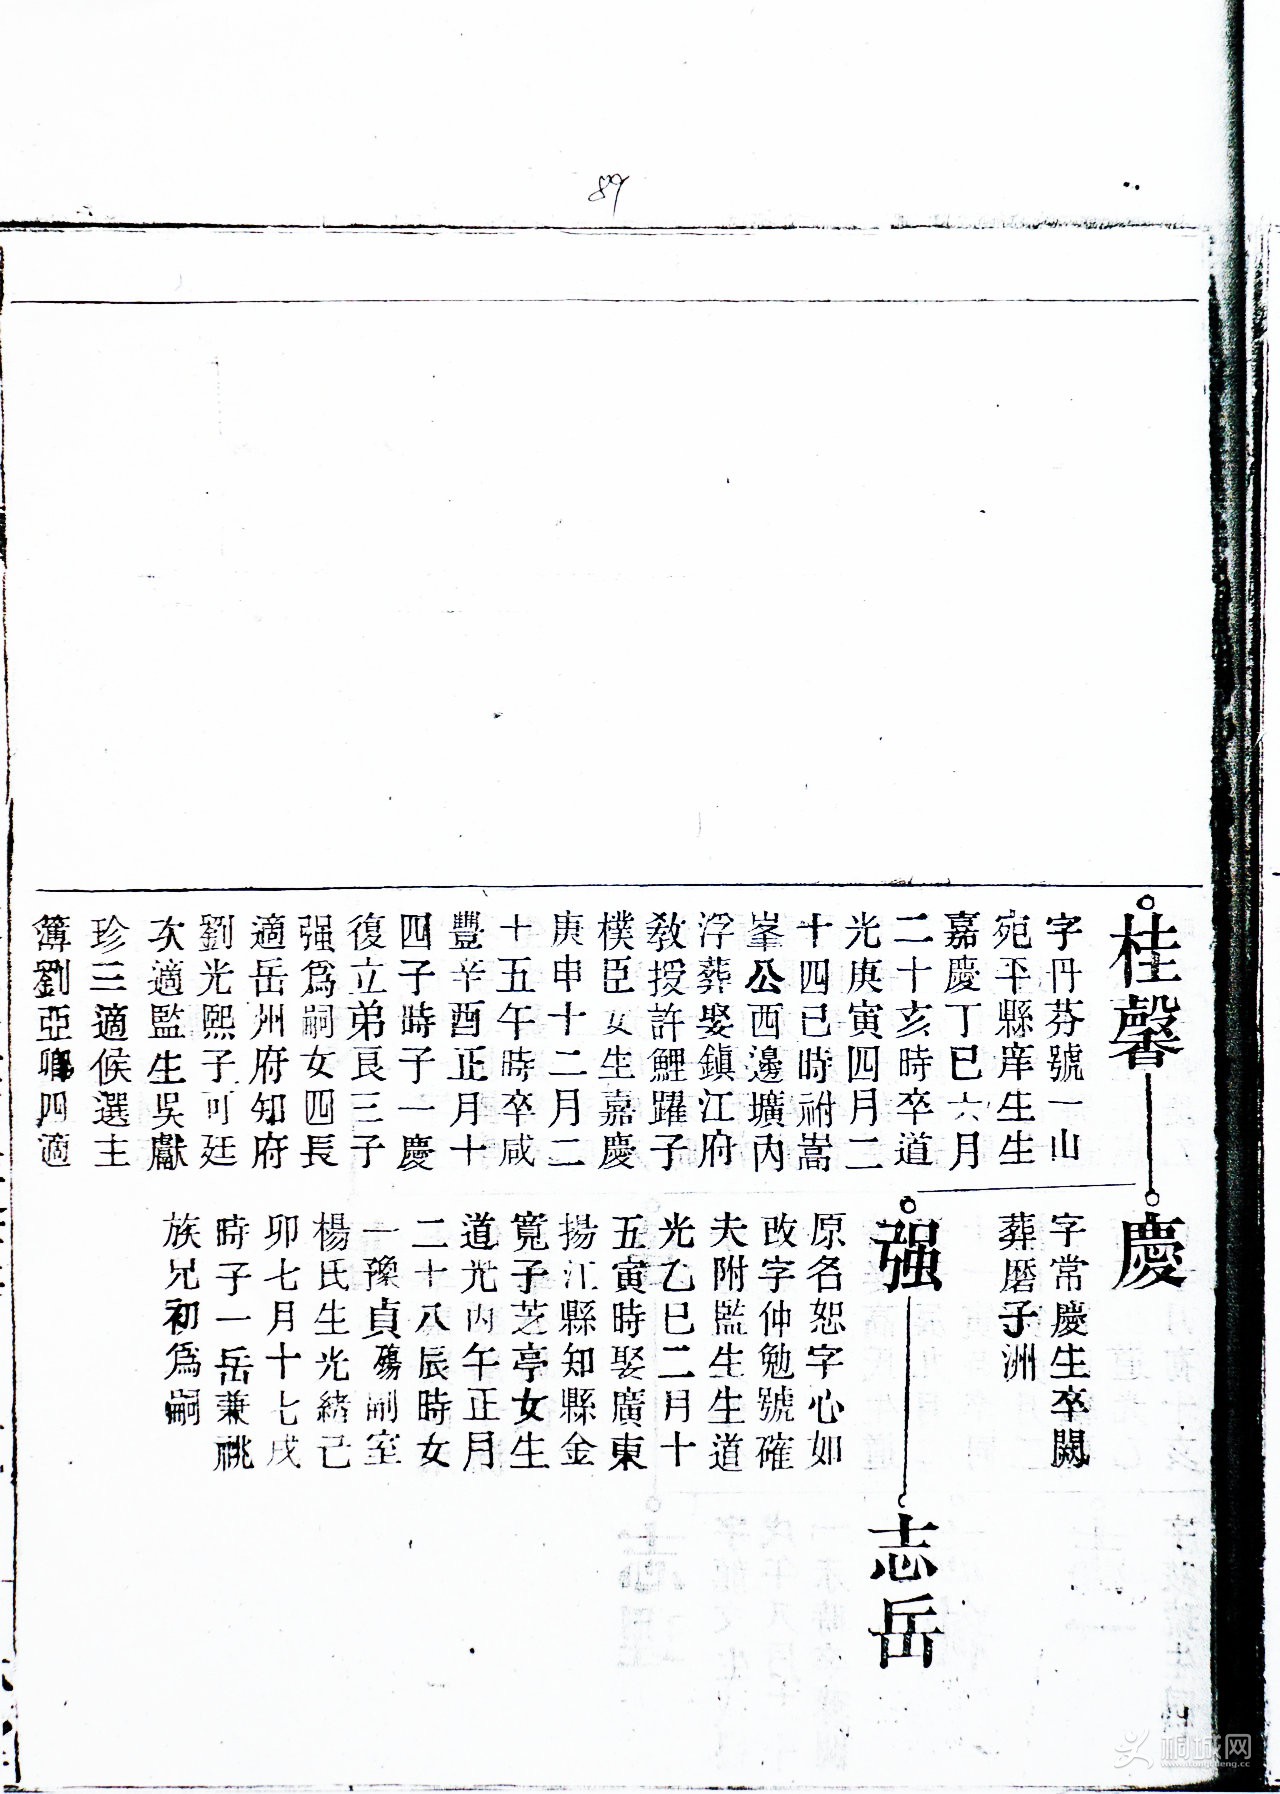 89
桂馨
字丹芬號一山
宛平縣庠生生
嘉慶丁巳六月
二十亥時卒道
光庚寅四月二
十四巳時祔嵩
峯公西邊壙內
浮葬娶鎮江府
教授許鯉躍子
樸臣女生嘉慶
庚申十二月二
十五午時卒咸
豐辛酉正月十
四子時子一慶
復立弟良三子
强爲嗣女四長
適岳州府知府
劉光熙子可廷
次適監生吳獻
珍三適候選主
簿劉亞卿四適
慶
字常慶生卒闕
葬磨子洲
强
原名恕字心如
改字仲勉號確
夫附監生生道
光乙巳二月十
五寅時娶廣東
揚江縣知縣金
寬子芝亭女生
道光丙午正月
二十八辰時女
一豫貞殤副室
楊氏生光緒己
卯七月十七戌
時子一岳兼祧
族兄初爲嗣
志岳
桐城网